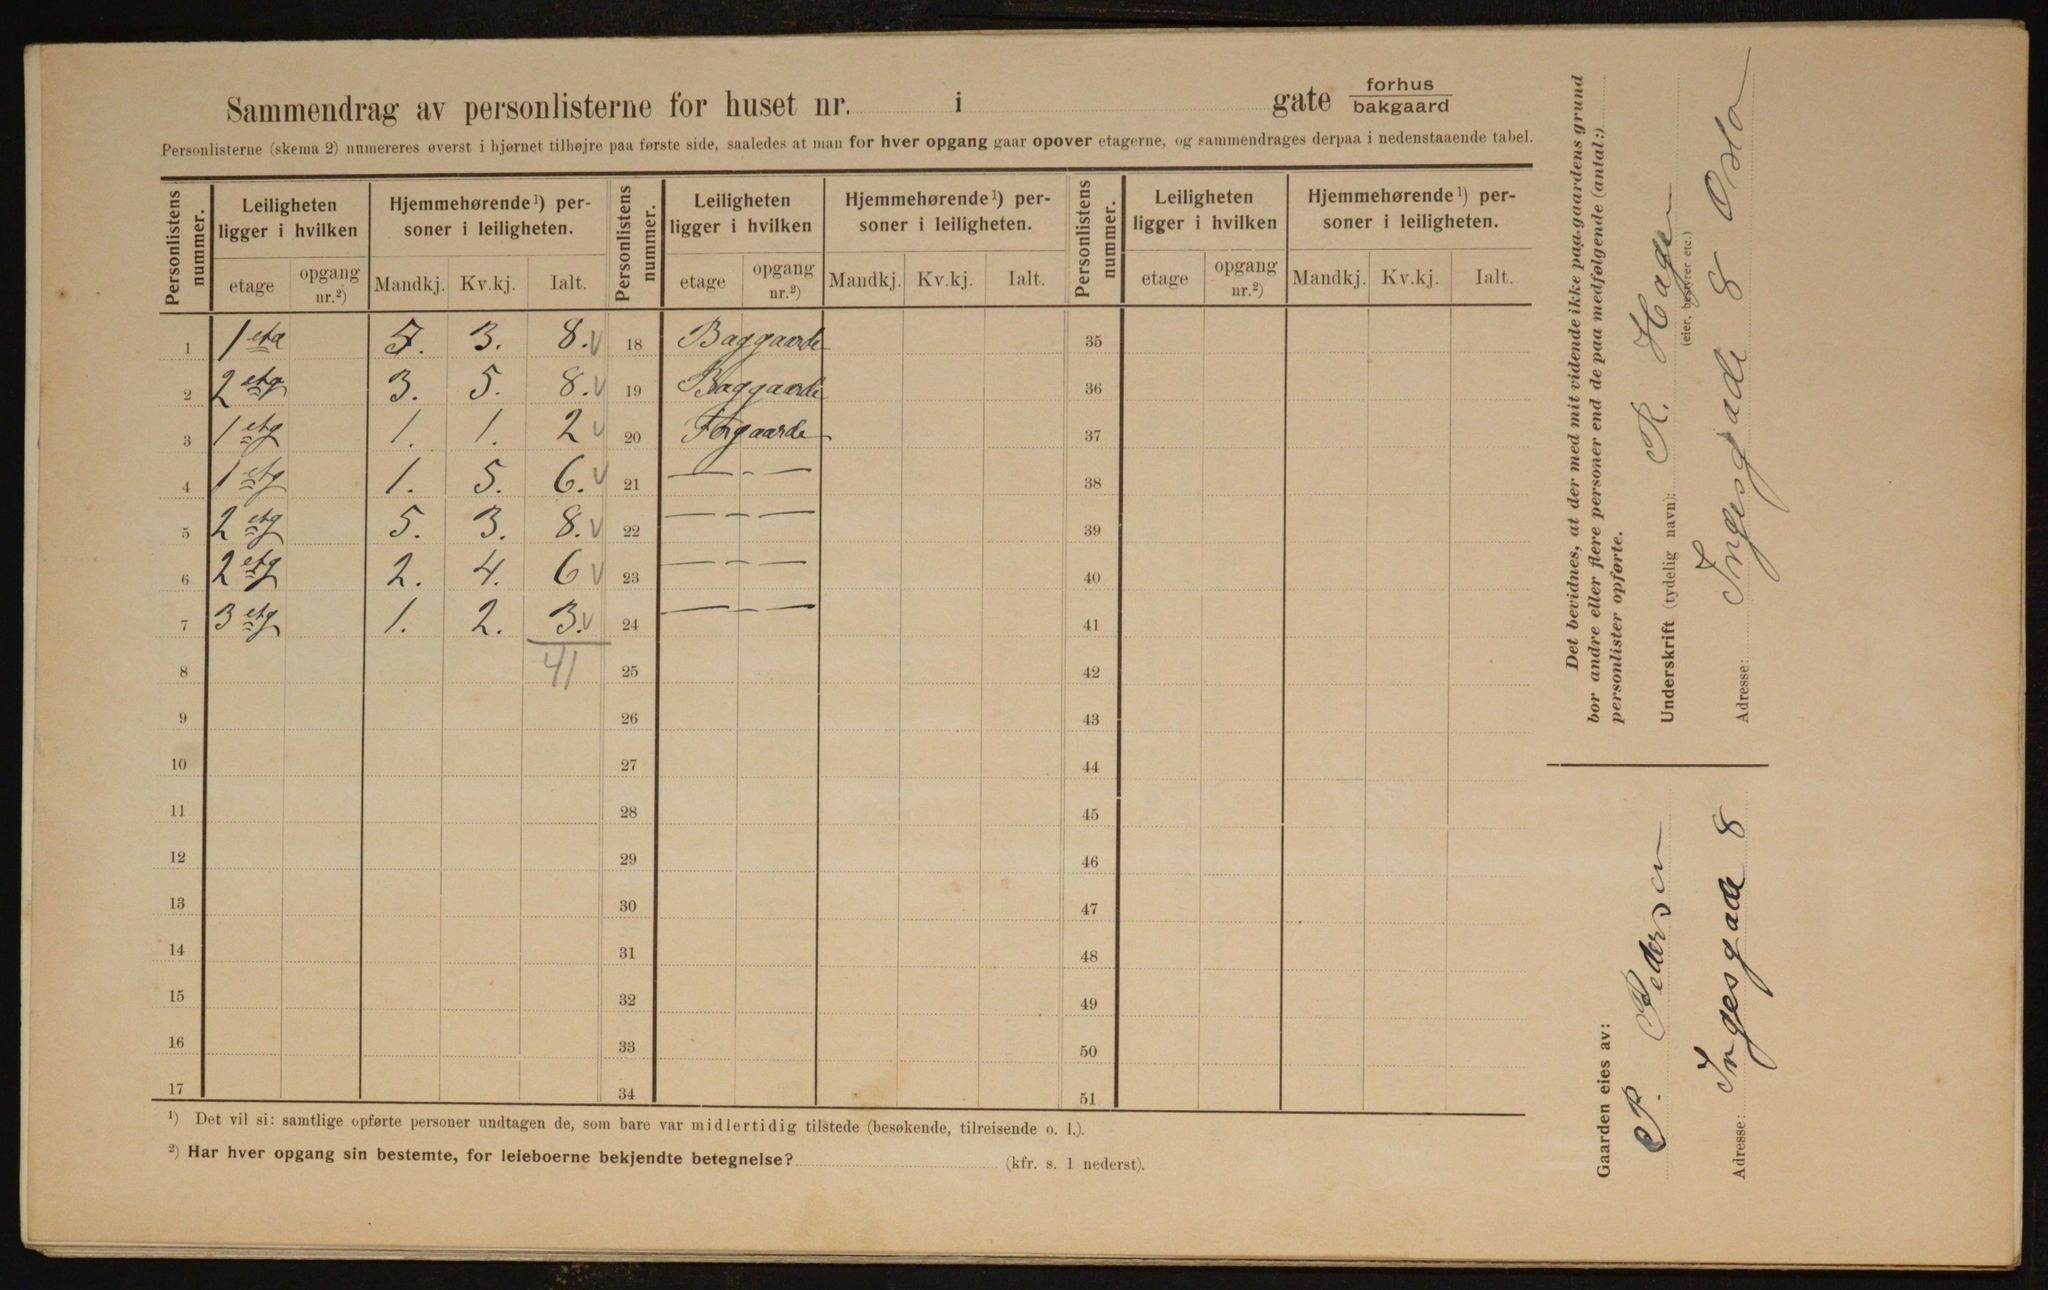 Sammendrag av personlisterne for huset nr. i gate forhus
bakgaard
Personlisterne (skema 2) numereres øverst i hjørnet tilhøjre paa første side, saaledes at man for hver opgang gaar opover etagerne, og sammendrages derpaa i nedenstaaende tabel.
Personlistens nummer. Leiligheten ligger i hvilken Hjemmehørende¹) personer i leiligheten. Personlistens nummer. Leiligheten ligger i hvilken Hjemmehørende¹) personer i leiligheten. Personlistens nummer. Leiligheten ligger i hvilken Hjemmehørende¹) personer i leiligheten.
etage opgang nr.²) Mandkj. Kv.kj. Ialt. etage opgang nr.²) Mandkj. Kv.kj. Ialt. etage opgang nr.²) Mandkj. Kv.kj. Ialt.
1 1 eta 5. 3. 8. v 18 Baggaarde 35
2 2 etg 3. 5. 8. v 19 Baggaarde 36
3 1 etg 1. 1. 2 v 20 Forgaarde 37
4 1 etg 1. 5. 6. v 21 — - — 38
5 2 etg 5. 3. 8. v 22 — - — 39
6 2 etg 2. 4. 6 v 23 — - — 40
7 3 etg 1. 2. 3. v 24 — - — 41
8 41 25 42
9 26 43
10 27 44
11 28 45
12 29 46
13 30 47
14 31 48
15 32 49
16 33 50
17 34 51
¹) Det vil si: samtlige opførte personer undtagen de, som bare var midlertidig tilstede (besøkende, tilreisende o. l.).
²) Har hver opgang sin bestemte, for leieboerne bekjendte betegnelse? (kfr. s. 1 nederst).
Det bevidnes, at der med mit vidende ikke paa gaardens grund
bor andre eller flere personer end de paa medfølgende (antal:)
personlister opførte.
Underskrift (tydelig navn): R. Hagen
(eier, bestyrer etc.)
Adresse: Ingesgade 8 Oslo
Gaarden eies av:
P. Pedersen
Adresse: Ingesgade 8